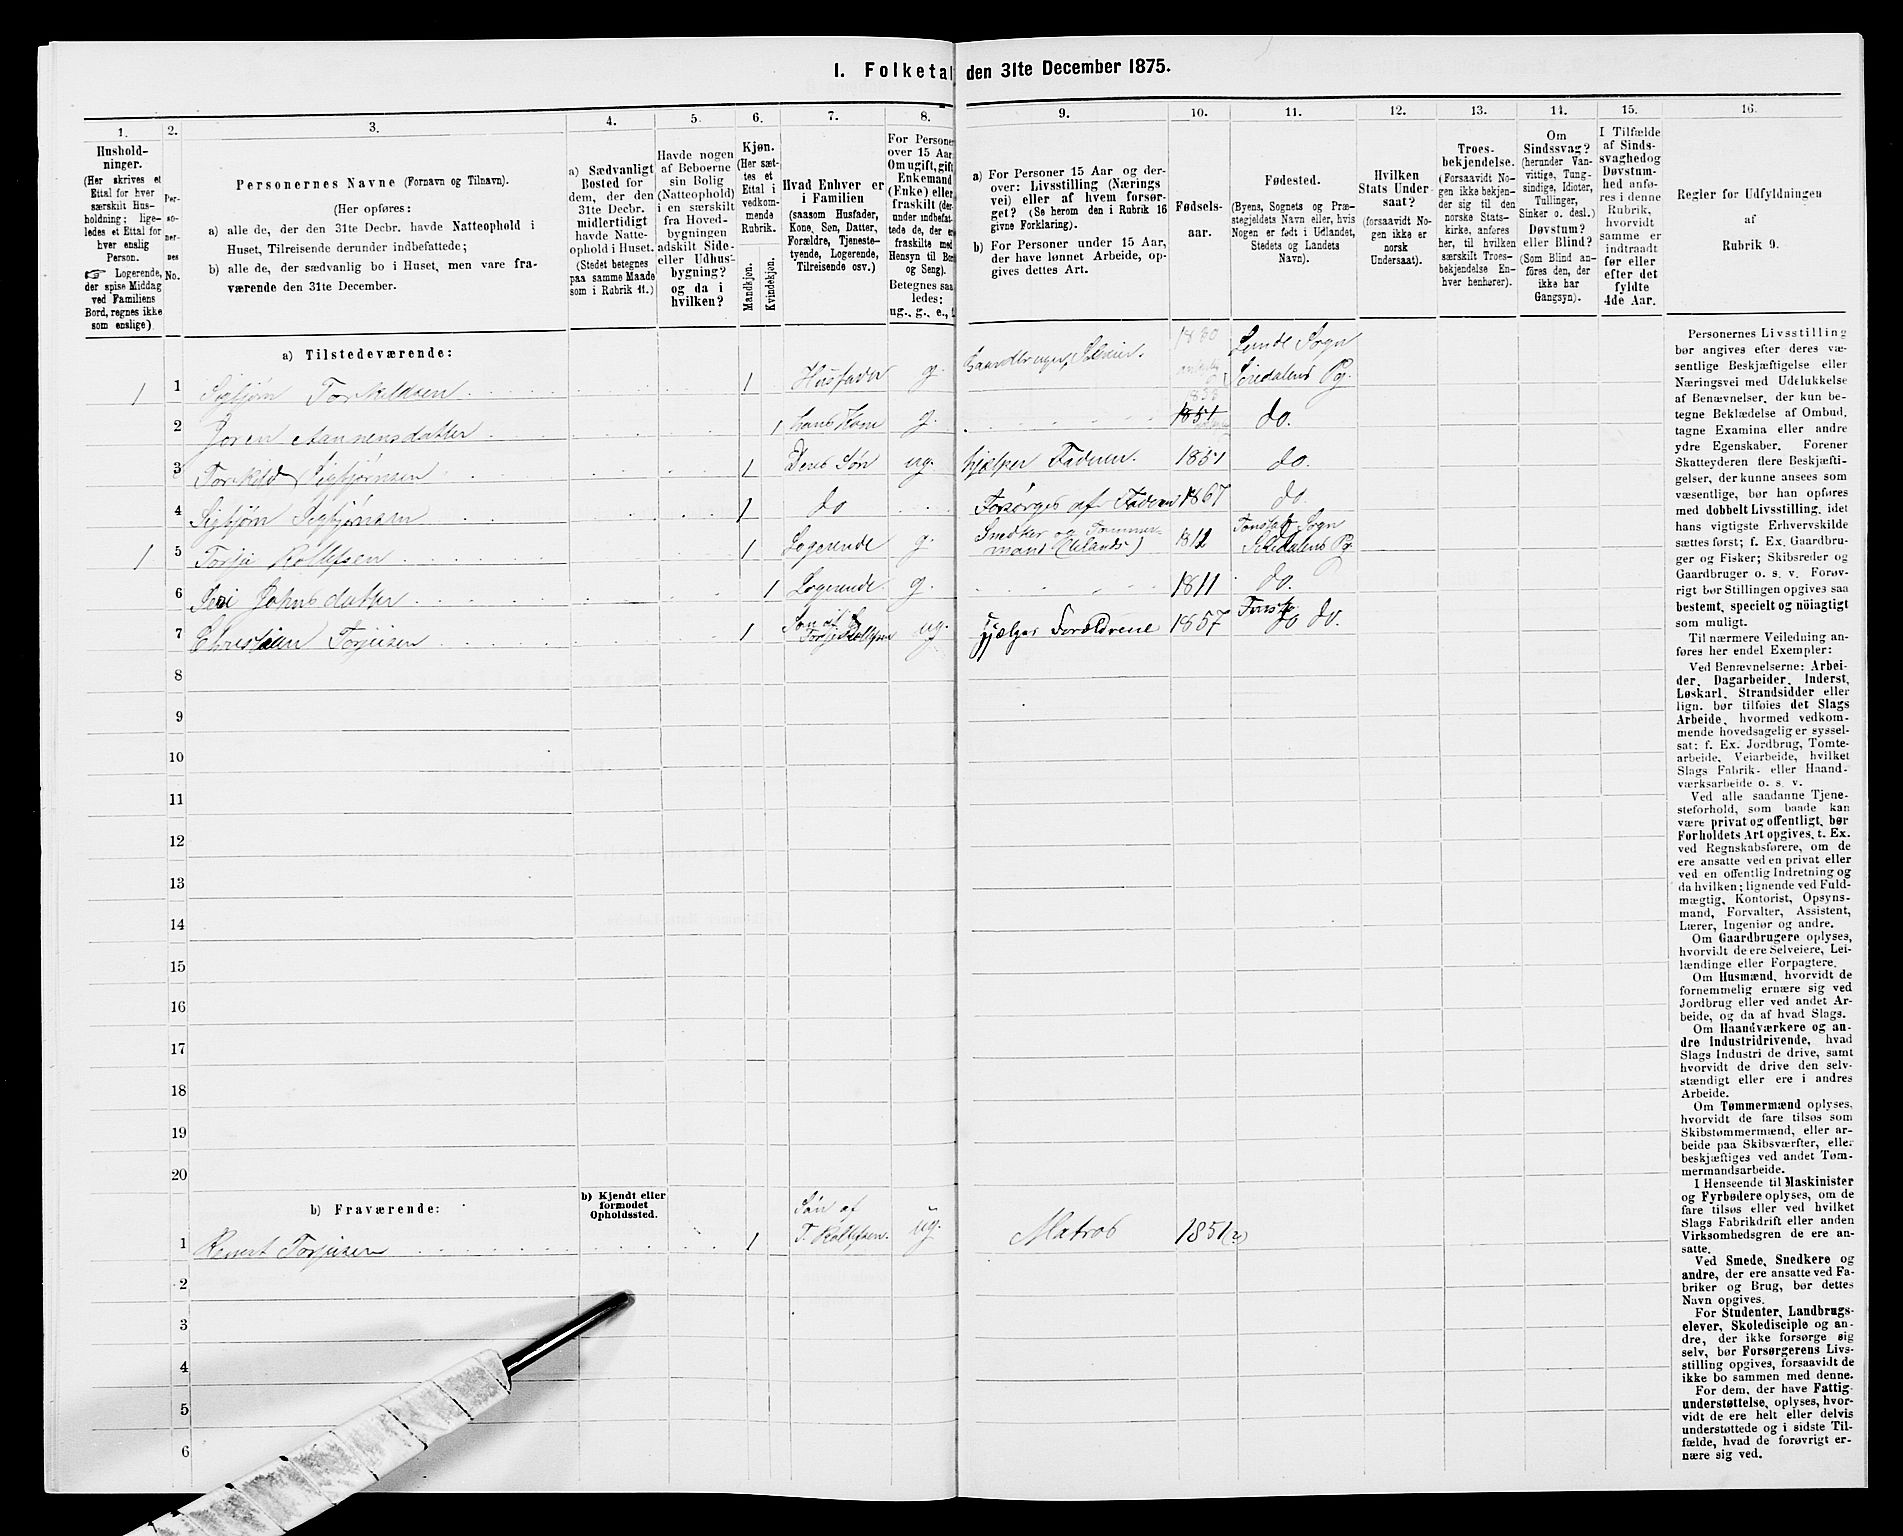 I. Folketal den 31te December 1875.
1.
Hushold-
ninger.
(Her skrives et
Ettal for hver
særskilt Hus-
holdning; lige-
ledes et Ettal for
hver enslig
Person.
☞ Logerende,
der spise Middag
ved Familiens
Bord, regnes ikke
som enslige).
2.
Per-
so-
ner-
nes
No.
3.
Personernes Navne (Fornavn og Tilnavn).
(Her opføres:
a) alle de, der den 31te Decbr. havde Natteophold i
Huset, Tilreisende derunder indbefattede;
b) alle de, der sædvanlig bo i Huset, men vare fra-
værende den 31te December.
4.
a) Sædvanligt
Bosted for
dem, der den
31te Decbr.
midlertidigt
havde Natte-
ophold i Huset.
(Stedet betegnes
paa samme Maade
som i Rubrik 11.)
5.
Havde nogen
af Beboerne
sin Bolig
(Natteophold)
i en særskilt
fra Hoved-
bygningen
adskilt Side-
eller Udhus-
bygning?
og da i
hvilken?
6.
Kjøn.
(Her sæt-
tes et
Ettal i
vedkom-
mende
Rubrik.
Mandkjøn.
Kvindekjøn.
7.
Hvad Enhver er
i Familien
(saasom Husfader,
Kone, Søn, Datter,
Forældre, Tjeneste-
tyende, Logerende,
Tilreisende osv.)
8.
For Personer
over 15 Aar
Om ugift, gift
Enkemand
(Enke) eller
fraskilt (der-
under indbefat-
tede de, der er
fraskilte med
Hensyn til Bord
og Seng).
Betegnes saa-
ledes:
ug., g., e.,
9.
a) For Personer 15 Aar og der-
over: Livsstilling (Nærings
vei) eller af hvem forsør-
get? (Se herom den i Rubrik 16
givne Forklaring).
b) For Personer under 15 Aar,
der have lønnet Arbeide, op-
gives dettes Art.
10.
Fødsels-
aar.
11.
Fødested.
(Byens, Sognets og Præ-
stegjeldets Navn eller, hvis
Nogen er født i Udlandet,
Stedets og Landets
Navn).
12.
Hvilken
Stats Under-
saat?
(forsaavidt No-
gen ikke er
norsk
Undersaat).
13.
Troes-
bekjendelse.
(Forsaavidt No-
gen ikke bekjen-
der sig til den
norske Stats-
kirke, anføres
her, til hvilken
særskilt Troes-
bekjendelse En-
hver henhører).
14.
Om
Sindssvag?
(herunder Van-
vittige, Tung-
sindige, Idioter,
Tullinger,
Sinker o. desl.)
Døvstum?
eller Blind?
(Som Blind an-
føres den, der
ikke har
Gangsyn).
15.
I Tilfælde
af Sinds-
svaghed og
Døvstum-
hed anfø-
res i denne
Rubrik,
hvorvidt
samme er
indtraadt
før eller
efter det
fyldte
4de Aar.
16.
Regler for Udfyldningen
af
Rubrik 9.
a) Tilstedeværende:
1 1 Sigbjørn Torkildsen 1 Husfader g. Gaardbruger, Selveier. 1830 Lunde Sogn Siredalens Pg.
2 Joren Aanensdatter 1 hans Kone g. 1851 do.
3 Torkild Sigbjørnsen 1 Deres Søn ug. hjelper Faderen. 1851 do.
4 Sigbjørn Sigbjørnsen 1 do Forsørges af Faderen 1867 do.
1 5 Torju Rolfsen 1 Logerende g. Snedker og Tømmer-mand (Udlands) 1812 Tonstad Sogn Siredalens Pg
6 Jori Johnsdatter 1 Logerende g. 1811 do.
7 Christian Torjusen 1 Søn af Torju Rolfsen ug. Hjælper Foreldrene 1857 Tonsta do do.
8
9
10
11
12
13
14
15
16
17
18
19
20
b) Fraværende:
b) Kjendt eller
formodet
Opholdssted.
1 Reinert Torjusen 1 Søn af T. Rolfsen. ug. Matros 1851(?)
2
3
4
5
6
Personernes Livsstilling
bør angives efter deres væ-
sentlige Beskjæftigelse eller
Næringsvei med Udelukkelse
af Benævnelser, der kun be-
tegne Beklædelse af Ombud,
tagne Examina eller andre
ydre Egenskaber. Forener
Skatteyderen flere Beskjæfti-
gelser, der kunne ansees som
væsentlige, bør han opføres
med dobbelt Livsstilling, idet
hans vigtigste Erhvervskilde
sættes først; f. Ex. Gaardbru-
ger og Fisker; Skibsreder og
Gaardbruger o. s. v. Forøv-
rigt bør Stillingen opgives saa
bestemt, specielt og nöiagtigt
som muligt.
Til nærmere Veiledning an-
føres her endel Exempler:
Ved Benævnelserne: Arbei-
der, Dagarbeider, Inderst,
Løskarl, Strandsidder eller
lign. bør tilføies det Slags
Arbeide, hvormed vedkom-
mende hovedsagelig er syssel-
sat: f. Ex. Jordbrug, Tomte-
arbeide, Veiarbeide, hvilket
Slags Fabrik- eller Haand-
værksarbeide o. s. v.
Ved alle saadanne Tjene-
steforhold, som baade kan
være privat og offentligt, bør
Forholdets Art opgives, t. Ex.
ved Regnskabsførere, om de
ere ansatte ved en privat eller
ved en offentlig Indretning og
da hvilken; lignende ved Fuld-
mægtig, Kontorist, Opsyns-
mand, Forvalter, Assistent,
Lærer, Ingeniør og andre.
Om Gaardbrugere oplyses,
hvorvidt de ere Selveiere, Lei-
lændinge eller Forpagtere.
Om Husmænd, hvorvidt de
fornemmelig ernære sig ved
Jordbrug eller ved andet Ar-
beide, og da af hvad Slags.
Om Haandværkere og an-
dre Industridrivende, hvad
Slags Industri de drive, samt
hvorvidt de drive den selv-
stændigt eller ere i andres
Arbeide.
Om Tømmermænd oplyses,
hvorvidt de fare tilsøs som
Skibstømmermænd, eller ar-
beide paa Skibsværfter, eller
beskjæftiges ved andet Tøm-
mermandsarbeide.
I Henseende til Maskinister
og Fyrbødere oplyses, om de
fare tilsøs eller ved hvilket
Slags Fabrikdrift eller anden
Virksomhedsgren de ere an-
satte.
Ved Smede, Snedkere og
andre, der ere ansatte ved Fa-
briker og Brug, bør dettes
Navn opgives.
For Studenter, Landbrugs-
elever, Skoledisciple og an-
dre, der ikke forsørge sig
selv, bør Forsørgerens Livs-
stilling opgives, forsaavidt de
ikke bo sammen med denne.
For dem, der have Fattig-
understøttelse, oplyses, hvor-
vidt de ere helt eller delvis
understøttede og i sidste Til-
fælde, hvad de forøvrigt er-
nære sig ved.